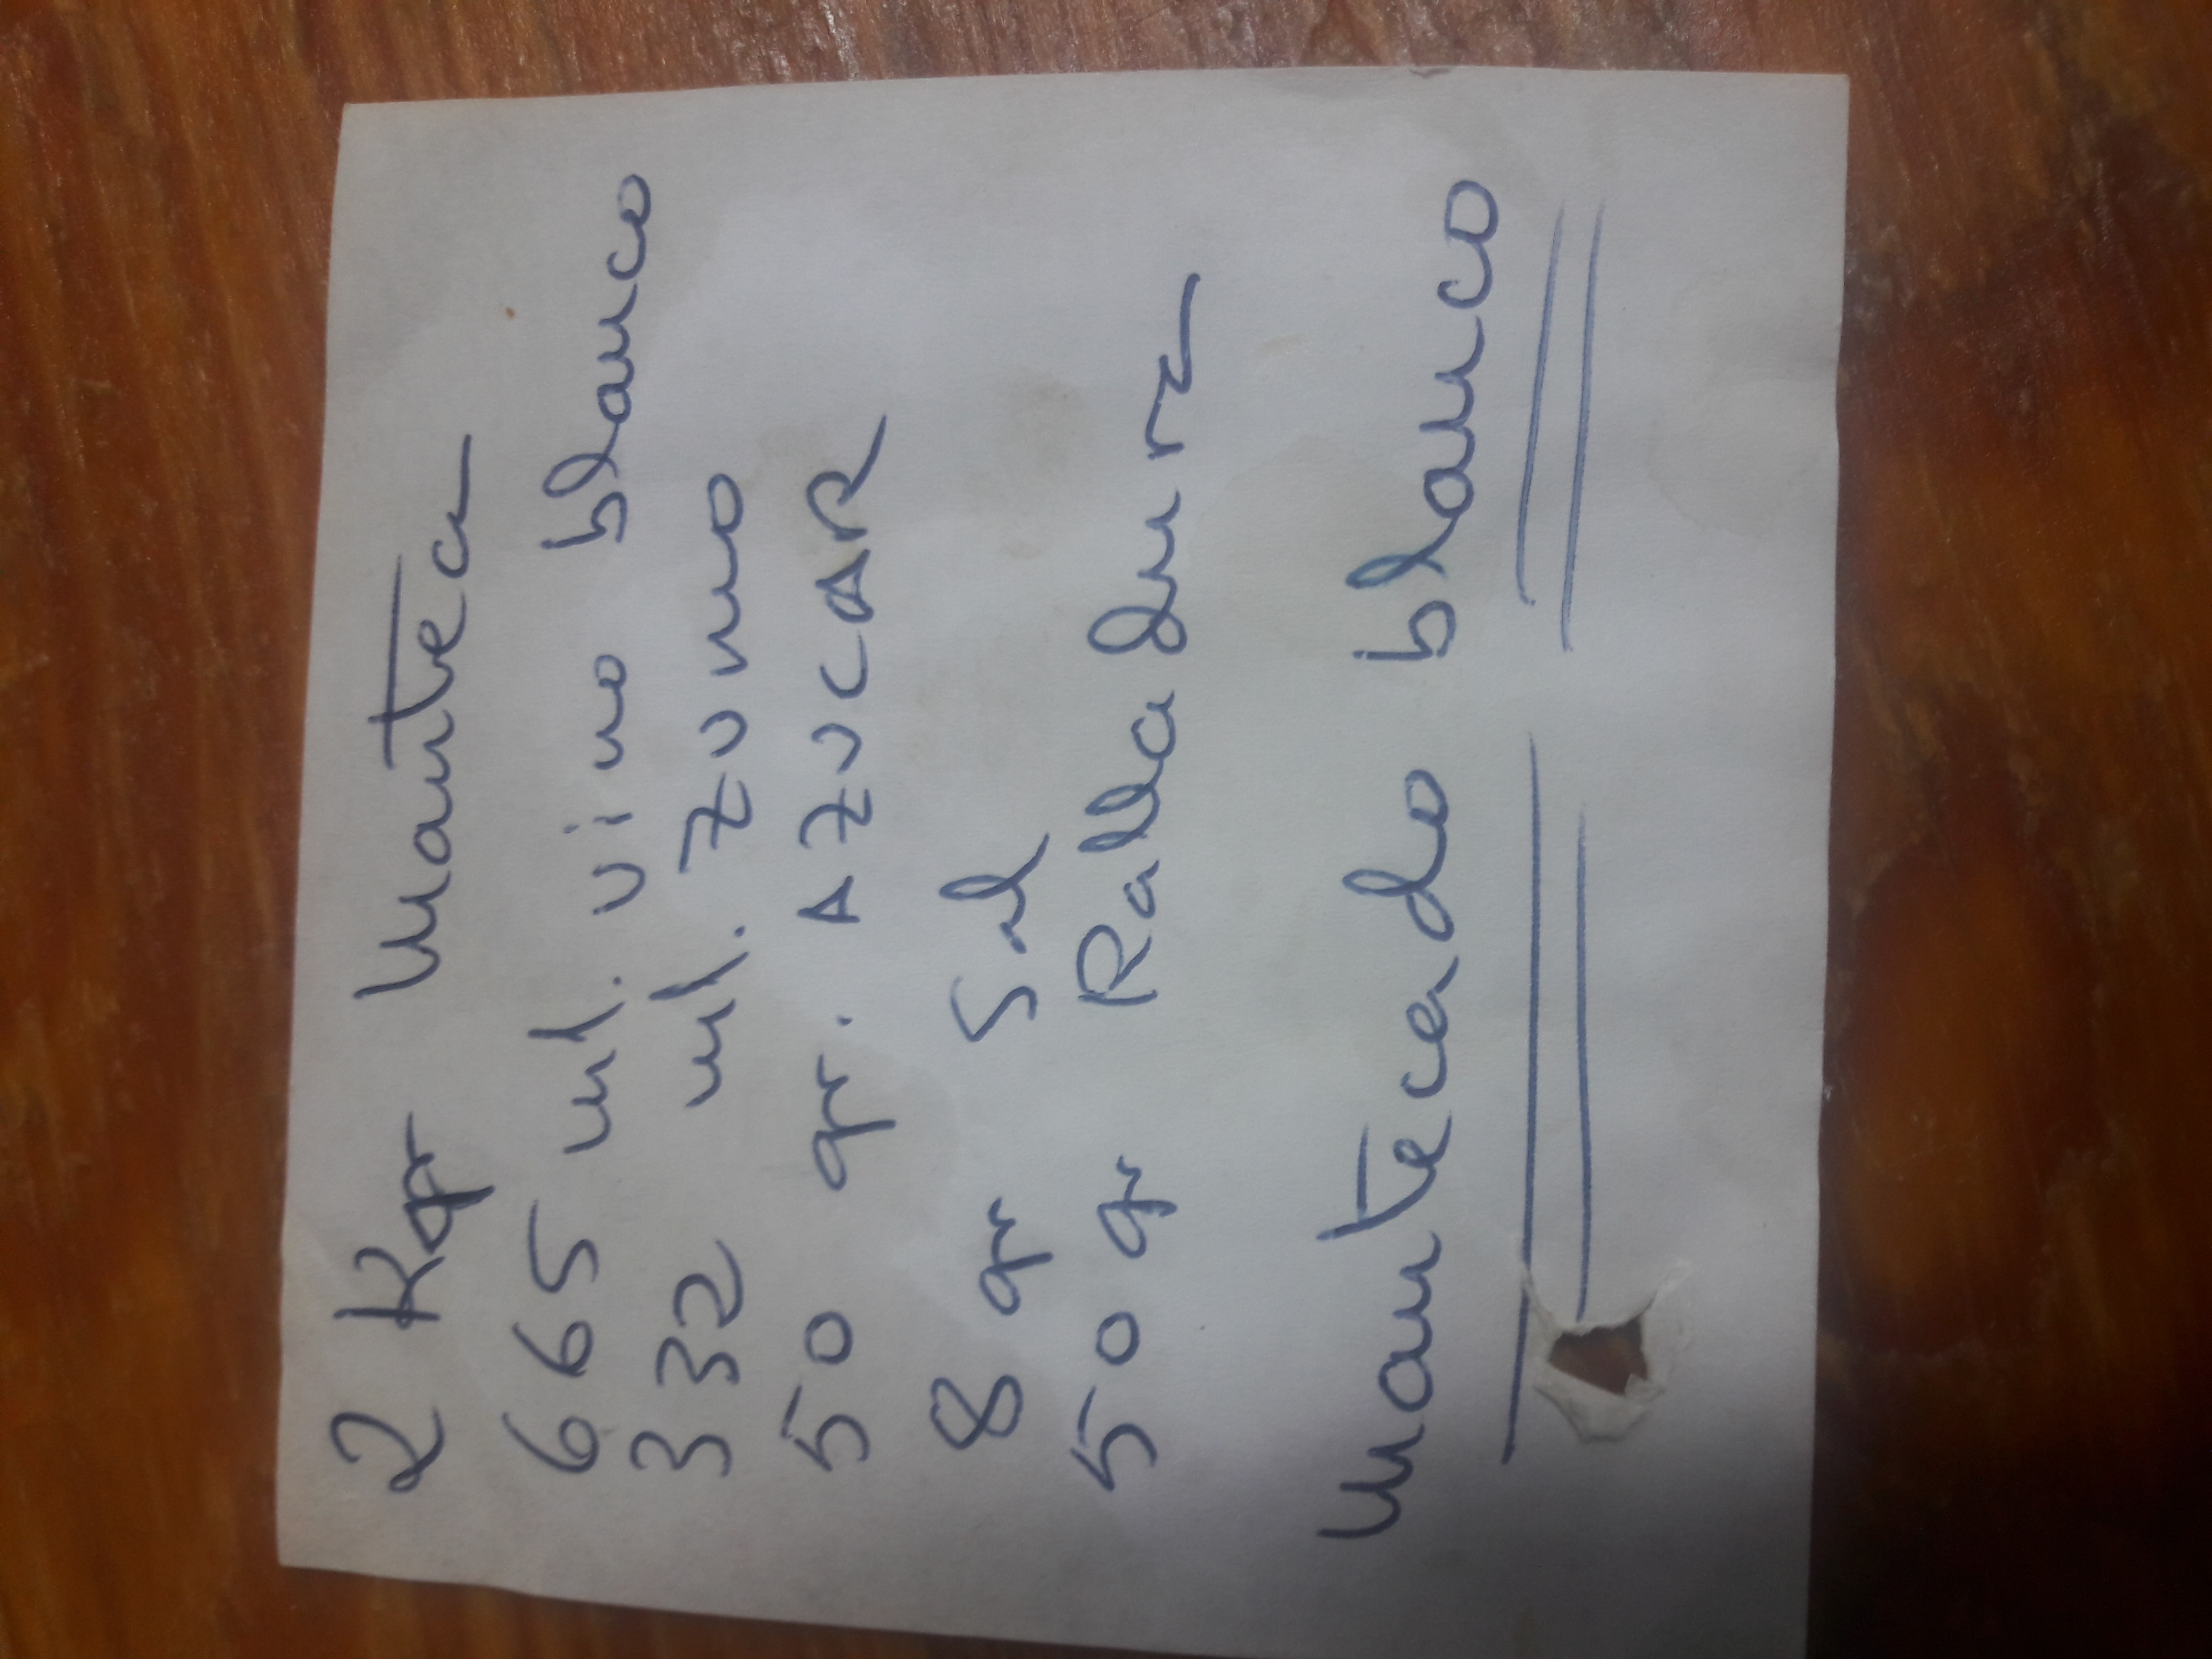 2 Kgr Manteca
665 ml. vino blanco
332 ml. ZUMO
50 gr. AZUCAR
8 gr Sal
50 gr Ralladura
Mantecado blanco